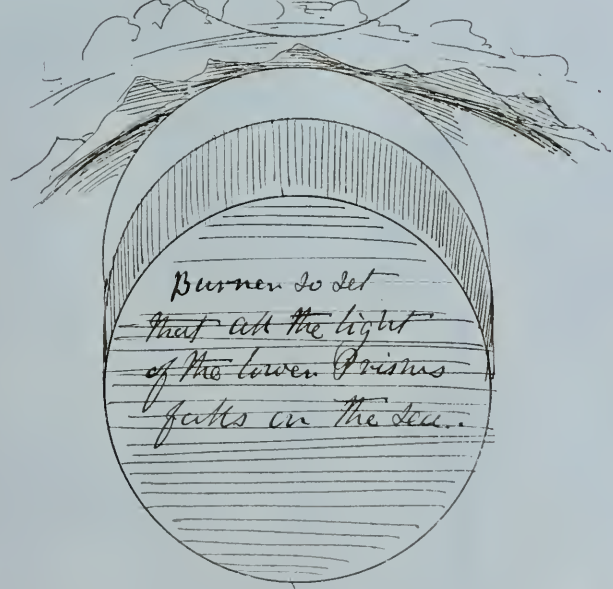 Burner so set
that all the light
of the lower Prisms
falls on the sea.